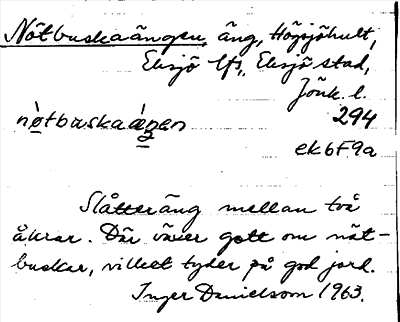 Nötbuskaängen, äng, Högsjöhult,
Eksjö lfs, Eksjö stad,
Jönk. l.
nòtbuskaáŋen 294
ek 6F9a
Slåtteräng mellan två
åkrar. Där växer gott om nöt-
buskar, vilket tyder på god jord.
Inger Danielsson 1963.